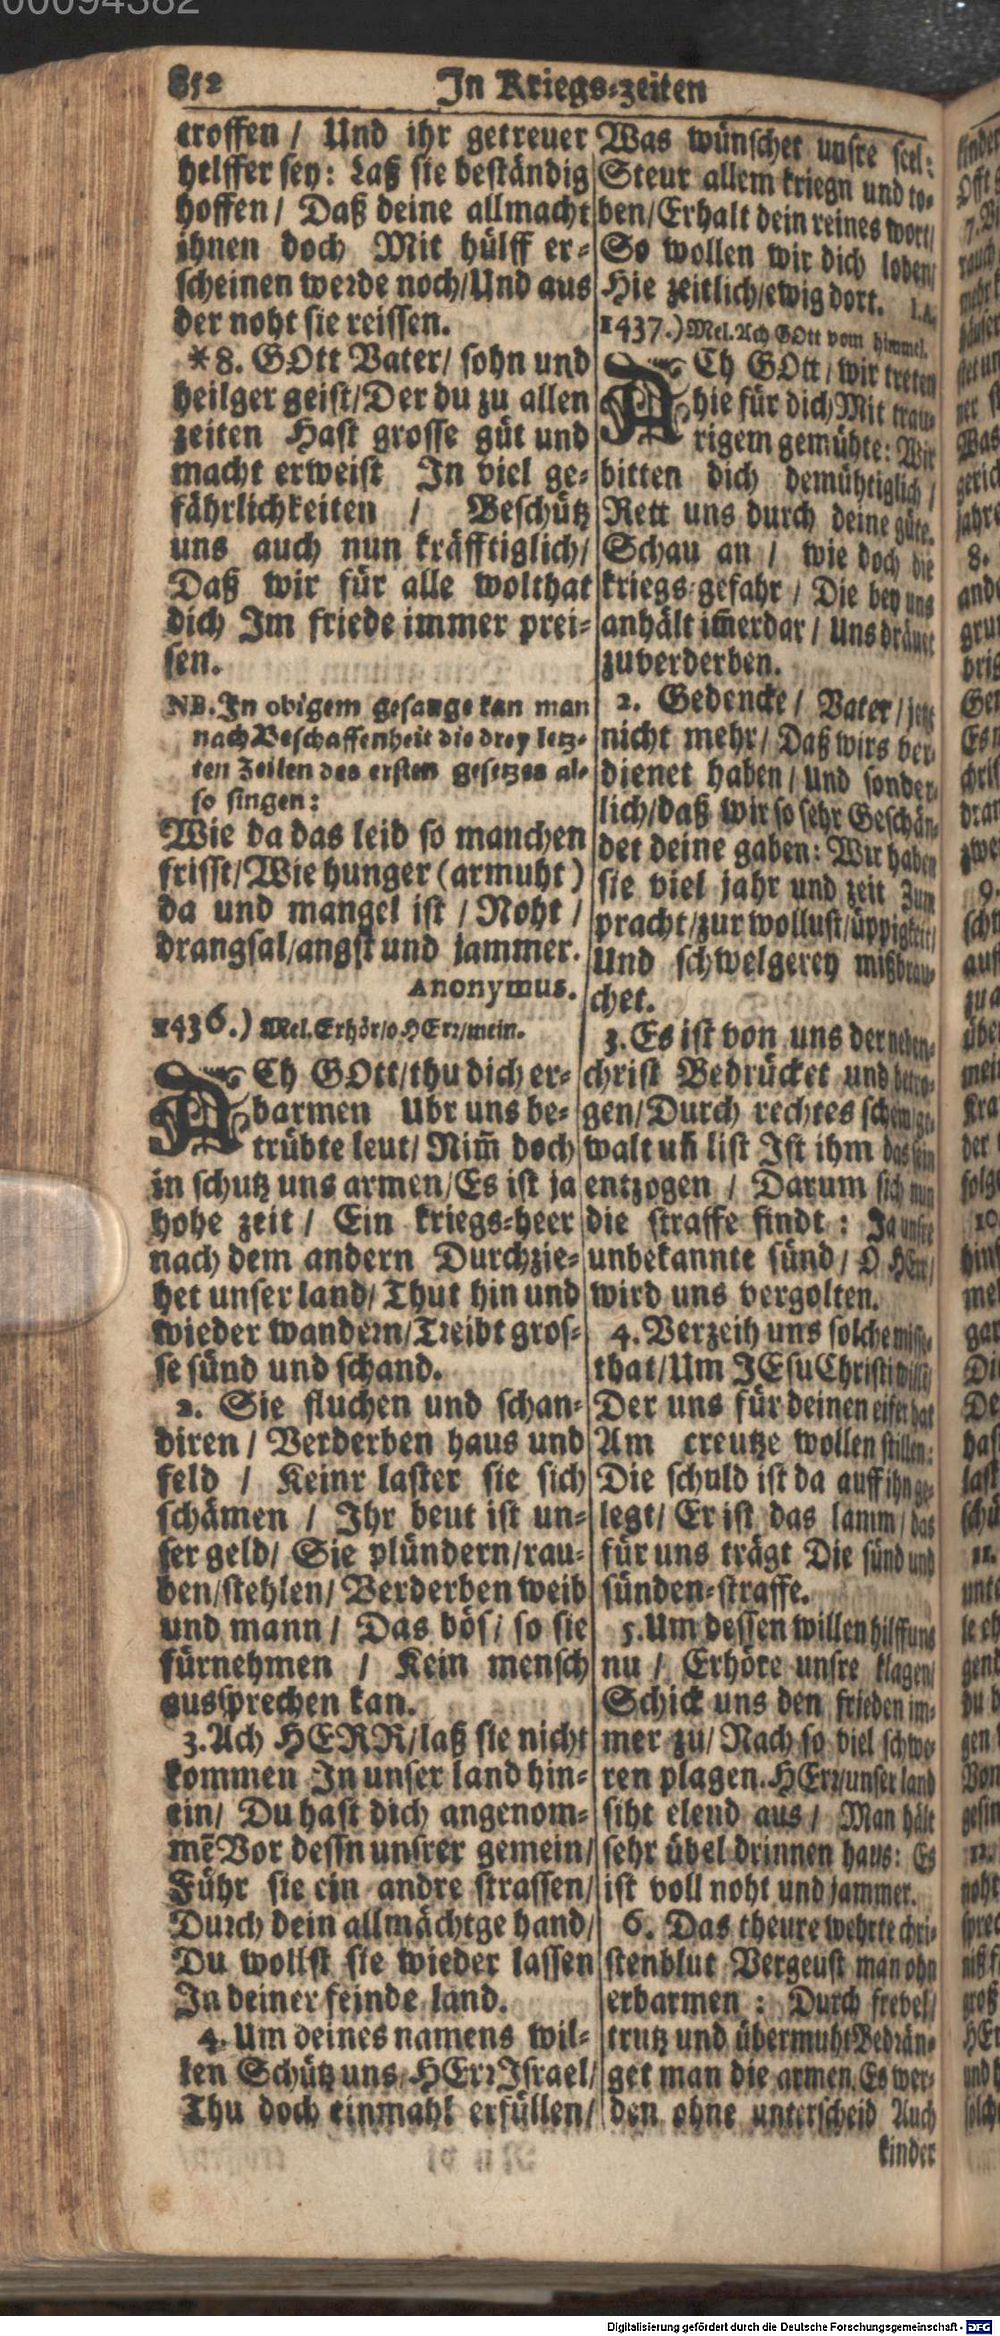 00094382
852 In Kriegs-zeiten
troffen / Und ihr getreuer
helffer sey: Laß sie beständig
hoffen / Daß deine allmacht
ihnen doch Mit hülff er-
scheinen werde noch/Und aus
der noht sie reissen.
*8. GOtt Vater/ sohn und
heilger geist/Der du zu allen
zeiten Hast grosse güt und
macht erweist In viel ge-
fährlichkeiten / Beschütz
uns auch nun kräfftiglich/
Daß wir für alle wolthat
dich Im friede immer prei-
sen.
NB. In obigem gesange kan man
nach Beschaffenheit die drey letz-
ten Zeilen des ersten gesetzes al-
so singen:
Wie da das leid so manchen
frisst/Wie hunger (armuht)
da und mangel ist / Noht /
drangsal/angst und jammer.
Anonymus.
1436.) Mel. Erhör/o HErr/mein.
ACh GOtt/thu dich er-
barmen Ubr uns be-
trübte leut/ Nim̃ doch
in schutz uns armen/Es ist ja
hohe zeit / Ein kriegs-heer
nach dem andern Durchzie-
het unser land/ Thut hin und
wieder wandern/Treibt gros-
se sünd und schand.
2. Sie fluchen und schan-
diren / Verderben haus und
feld / Keinr laster sie sich
schämen / Ihr beut ist un-
ser geld/ Sie plündern/rau-
ben/stehlen/ Verderben weib
und mann / Das bös/ so sie
fürnehmen / Kein mensch
aussprechen kan.
3. Ach HERR/laß sie nicht
kommen In unser land hin-
ein/ Du hast dich angenom-
mẽ Vor dessn unsrer gemein/
Führ sie ein andre strassen/
Durch dein allmächtge hand/
Du wollst sie wieder lassen
In deiner feinde land.
4. Um deines namens wil-
len Schütz uns/HErr Israel/
Thu doch einmahl erfüllen/
Was wünschet unsre seel:
Steur allem kriegn und to-
ben/Erhalt dein reines wort/
So wollen wir dich loben/
Hie zeitlich/ewig dort. I.A.
1437.) Mel. Ach GOtt vom himmel.
ACh GOtt / wir treten
hie für dich Mit trau-
rigem gemühte: Wir
bitten dich demühtiglich /
Rett uns durch deine güte.
Schau an / wie doch die
kriegs-gefahr / Die bey uns
anhält im̃erdar / Uns dräuet
zuverderben.
2. Gedencke / Vater / jetzt
nicht mehr/ Daß wirs ver-
dienet haben / Und sonder-
lich/daß wir so sehr Geschän-
det deine gaben: Wir haben
sie viel jahr und zeit Zum
pracht/zur wollust/üppigkeit/
Und schwelgerey mißbrau-
chet.
3. Es ist von uns der neben-
christ Bedrücket und betro-
gen/Durch rechtes schein/ge-
walt uñ list Ist ihm das sein
entzogen / Darum sich nun
die straffe findt: Ja unsre
unbekannte sünd / O HErr/
wird uns vergolten.
4. Verzeih uns solche misse-
that/Um JEsu Christi willn/
Der uns für deinen eifer hat
Am creutze wollen stillen:
Die schuld ist da auff ihn ge-
legt/ Er ist das lamm / das
für uns trägt Die sünd und
sünden-straffe.
5. Um dessen willen hilff uns
nu / Erhöre unsre klagen/
Schick uns den frieden im-
mer zu/ Nach so viel schwe-
ren plagen. HErr/unser land
siht elend aus / Man hält
sehr übel drinnen haus: Es
ist voll noht und jammer.
6. Das theure wehrte chri-
stenblut Vergeust man ohn
erbarmen: Durch frevel/
trutz und übermuht Bedrän-
get man die armen. Es wer-
den ohne unterscheid Auch
kinder
Digitalisierung gefördert durch die Deutsche Forschungsgemeinschaft - DFG